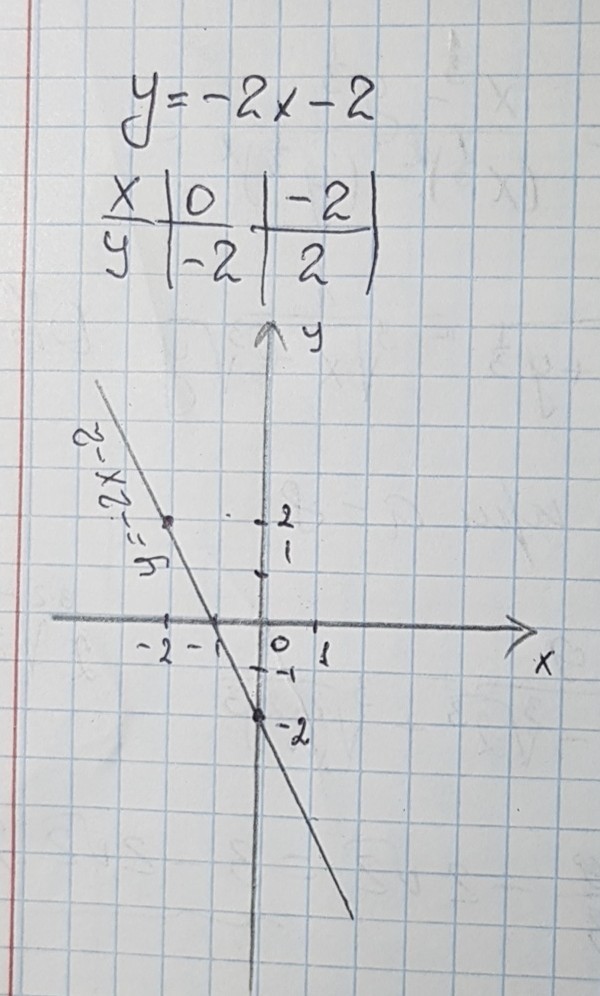 y = -2x - 2
x | 0 | -2 |
y | -2 | 2 |
y
y = -2x - 2
2
1
-2 -1 0 1
x
-1
-2